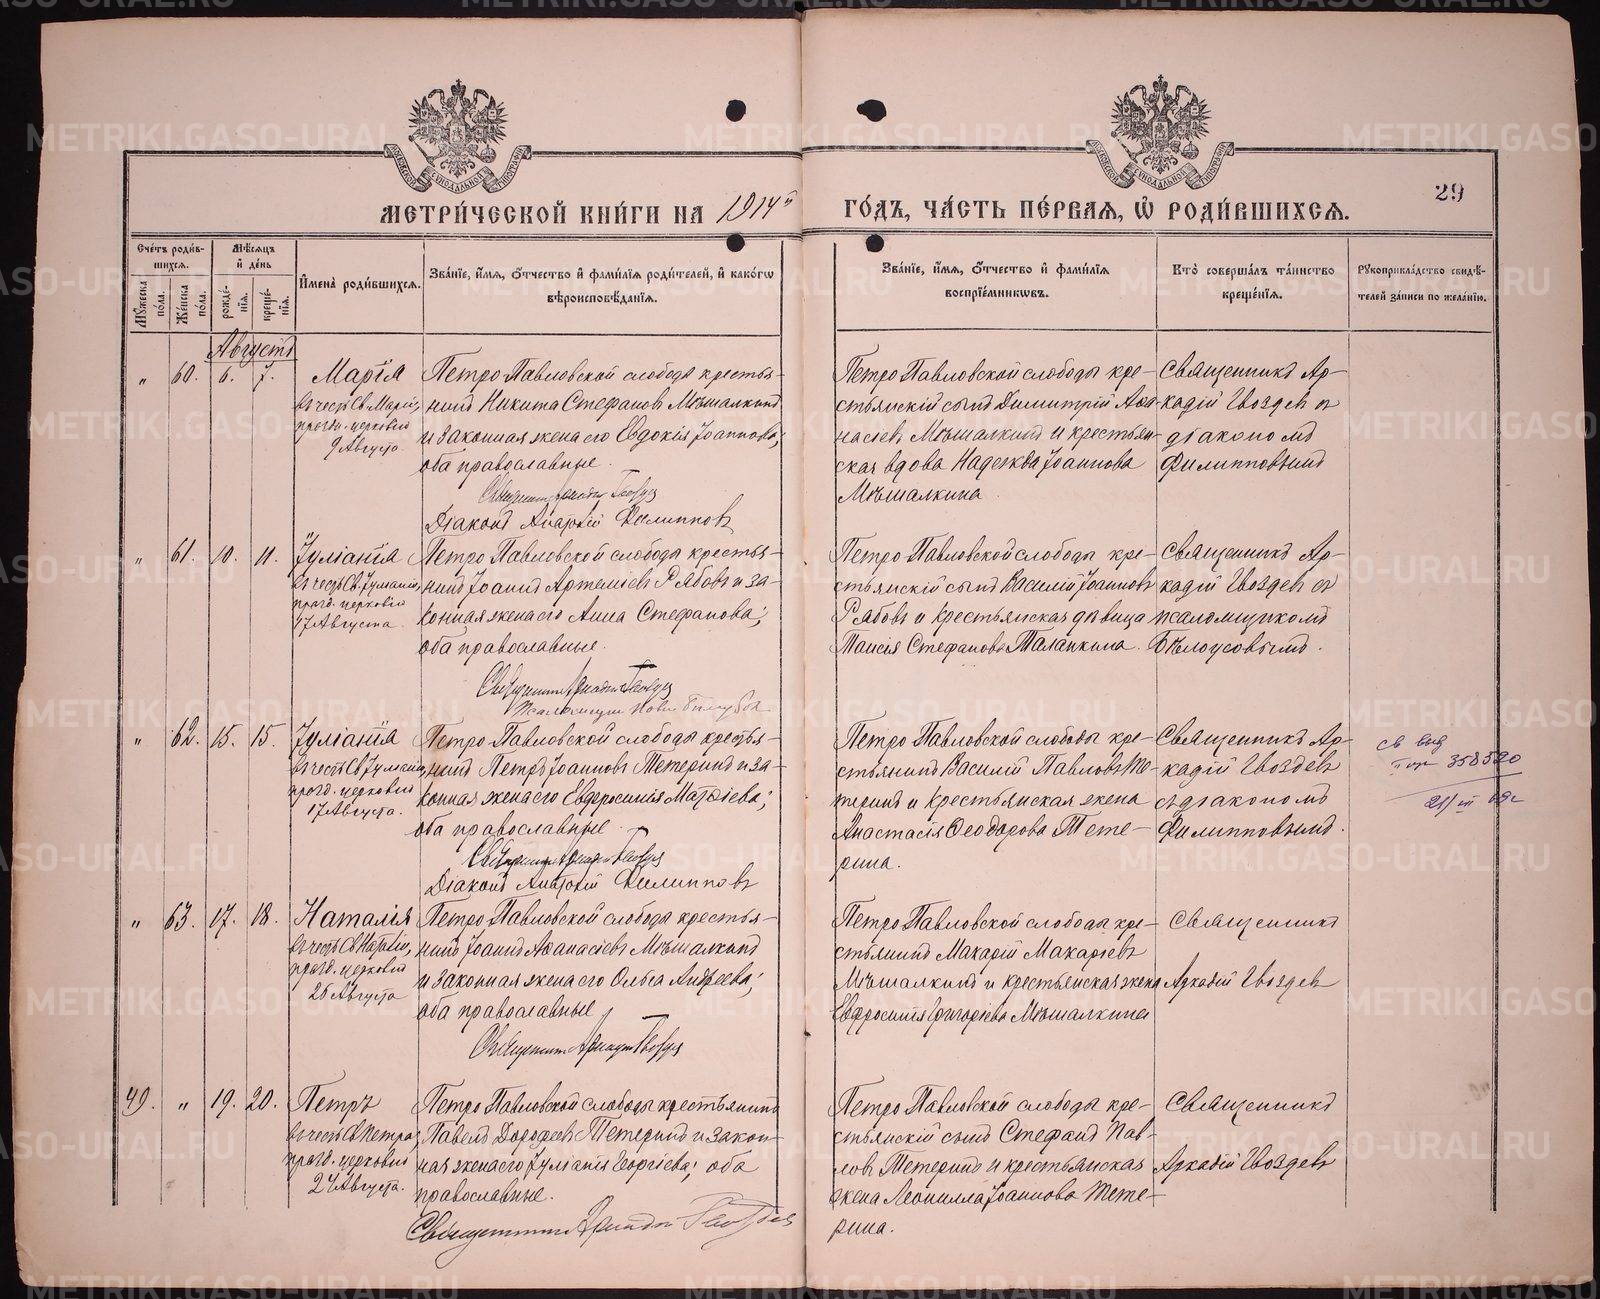 МЕТРИ́ЧЕСКОЙ КНИ́ГИ НА 1914й ГО́ДЪ, ЧА́СТЬ ПЕ́РВАЯ, Ѡ҆ РОДИ́ВШИХСЯ.
29
Сче́тъ роди́вшихся.
Му́жеска по́ла.
Же́нска по́ла.
Мѣ́сяцъ и҆ де́нь
рожде́нїя.
креще́нїя.
И҆мена̀ роди́вшихся.
Зва́нїе, и҆́мя, ѻ҆́тчество и҆ фами́лїя роди́телей, и҆ како́гѡ вѣроисповѣ́данїя.
Зва́нїе, и҆́мя, ѻ҆́тчество и҆ фами́лїя воспрїе́мниковъ.
Кто̀ соверша́лъ та́инство креще́нїя.
Рꙋкоприкла́дство свидѣ́телей за́писи по жела́нїю.
Августъ
" 60. 6. 7.
Марія
въ честь Св. Маріи,
празд. церковію
9 Августа
Петро Павловской слободы крестья-
нинъ Никита Стефановъ Мѣшалкинъ
и законная жена его Евдокія Іоаннова;
оба православные.
Священникъ Аркадій Гвоздевъ
Діаконъ Анатолій Филипповъ
Петро Павловской слободы кре-
стьянскій сынъ Димитрій Аѳа-
насіевъ Мѣшалкинъ и крестьян-
ская вдова Надежда Іоаннова
Мѣшалкина
Священникъ Ар-
кадій Гвоздев съ
діакономъ
Филипповымъ
" 61. 10. 11.
Іуліанія
въ честь Св. Іуліаніи,
празд. церковію
17 Августа
Петро Павловской слободы крестья-
нинъ Іоаннъ Артеміевъ Рябовъ и за-
конная жена его Анна Стефанова;
оба православные.
Священникъ Аркадій Гвоздевъ
Петро Павловской слободы кре-
стьянскій сынъ Василій Іоанновъ
Рябовъ и крестьянская дѣвица
Таисія Стефанова Таланкина.
Священникъ Ар-
кадій Гвоздев съ
псаломщикомъ
Бѣлоусовымъ.
" 62. 15. 15.
Іуліанія
въ честь Св. Іуліаніи,
празд. церковію
17 Августа.
Петро Павловской слободы крестья-
нинъ Петръ Іоанновъ Тетеринъ и за-
конная жена его Евфросинія Матѳіева;
оба православные.
Священникъ Аркадій Гвоздевъ
Діаконъ Анатолій Филипповъ
Петро Павловской слободы кре-
стьянинъ Василій Павловъ Те-
теринъ и крестьянская жена
Анастасія Ѳеодорова Тете-
рина.
Священникъ Ар-
кадій Гвоздевъ
съ діакономъ
Филипповымъ.
358520
" 63. 17. 18.
Наталія
въ честь Св. Наталіи,
празд. церковію
26 Августа
Петро Павловской слободы крестья-
нинъ Іоаннъ Аѳанасіевъ Мѣшалкинъ
и законная жена его Ольга Андреева;
оба православные
Священникъ Аркадій Гвоздевъ
Петро Павловской слободы кре-
стьянинъ Макарій Макаріевъ
Мѣшалкинъ и крестьянская жена
Евфросинія Григоріева Мѣшалкина
Священникъ
Аркадій Гвоздевъ
49. " 19. 20.
Петръ
въ честь Св. Петра,
празд. церковію
24 Августа.
Петро Павловской слободы крестьянинъ
Павелъ Дороѳеевъ Тетеринъ и закон-
ная жена его Іуліанія Георгіева; оба
православные.
Священникъ Аркадій Гвоздевъ
Петро Павловской слободы кре-
стьянскій сынъ Стефанъ Пав-
ловъ Тетеринъ и крестьянская
жена Леонилла Іоаннова Тете-
рина.
Священникъ
Аркадій Гвоздевъ
METRIKI.GASO-URAL.RU